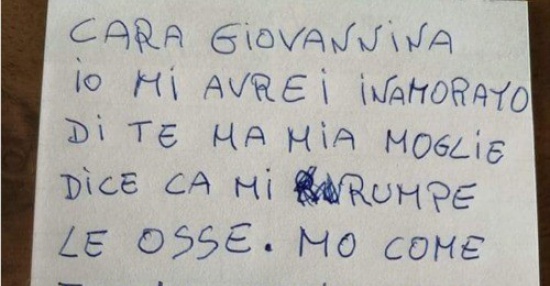 CARA GIOVANNINA
io MI AVREI INAMORATO
DI TE MA MIA MOGLIE
DICE CA MI RUMPE
LE OSSE. MO COME